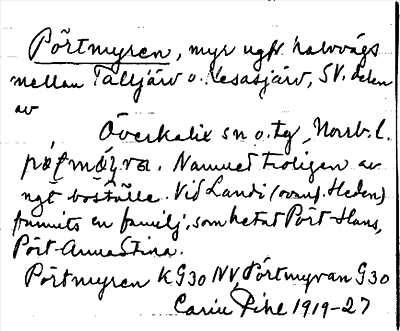 Pörtmyren, myr ugf. halvvägs
mellan Talljärv o. Vesasjärv, SV. delen
av
Överkalix sn o. tg, Norrb. l.
Namnet troligen av
ngt boställe. Vid Landi (ovanf. Heden)
funnits en familj, som hetat Pört-Hans,
Pört-Anna Stina.
Pörtmyren K G30 NV, Pörtmyran G30
Carin Pihl 1919-27